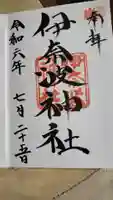 奉拝
伊奈波神社
令和六年 七月二十五日